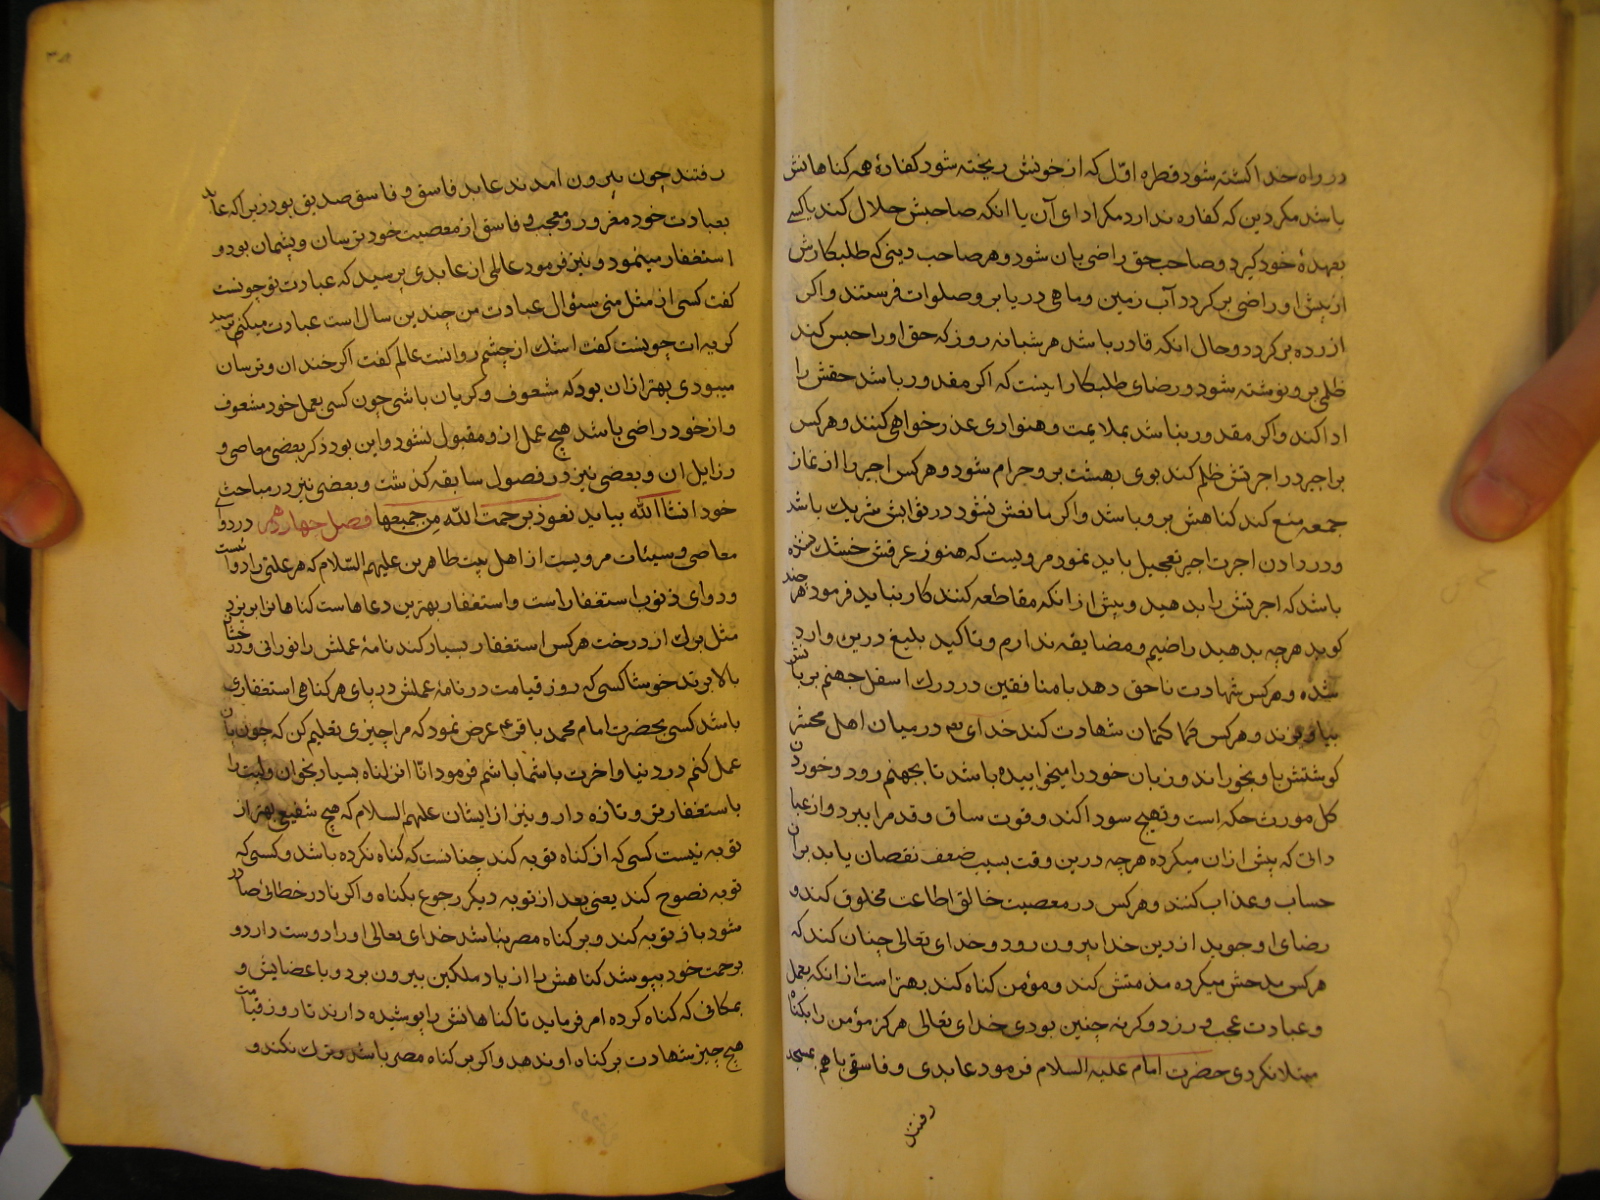 در راه خدا کشته شود قطره اوّل که از خونش ریخته شود کفارهٔ همه کناهانش
باشد مکر دین که کفاره ندارد مکر ادای آن یا انکه صاحبش حلال کند یا کسی
بعهدهٔ خود کیرد و صاحب حق راضی بان شود و هر صاحب دینی که طلبکارش
از پیش او راضی برکردد آب زمین و ماهی دریا بر و صلوات فرستند و اکر
ازرده برکردد و حال انکه قادر باشد هر شبانه روز که حق او را حبس کند
ظلمی برو نوشته شود و رضای طلبکار اینست که اکر مقدور باشد حقش را
ادا کند و اکر مقدور نباشد بملایمت و همواری عذر خواهی کنند و هر کس
بر اجیر در اجرتش ظلم کند بوی بهشت برو حرام شود و هر کس اجیر را از نماز
جمعه منع کند کناهش برو باشد و اکر مانعش نشود در ثوابش شریک باشد
و در دادن اجرت اجیر تعجیل باید نمود مرویست که هنوز عرقش خشک نشده
باشد که اجرتش را بدهید و پیش از انکه مقاطعه کنند کار نباید فرمود هر چند
کوید هر چه بدهید راضیم و مضایقه ندارم و تاکید بلیغ درین وارد
شده و هر کس شهادت ناحق دهد با منافقین در درک اسفل جهنم
بیاویزند و هر کس کتمان شهادت کند خدای تع در میان اهل محشر
کوشتش باو بخوراند و زبان خود را میخواییده باشد تا بجهنم رود و خوردن
کل مورث حکه است و تهیج سودا کند و قوت ساق و قدم را ببرد و از عبا
داتی که پیش ازان میکرده هر چه درین وقت بسبب ضعف نقصان یابد بران
حساب و عذاب کنند و هر کس در معصیت خالق اطاعت مخلوق کند و
رضای او جوید از دین خدا بیرون رود و خدای تعالی چنان کند که
هر کس مدحش میکرده مذمتش کند و مؤمن کناه کند بهتر است از انکه بعمل
و عبادت عجب ورزد و کر نه چنین بودی خدای تعالی هرکز مؤمن را بکناه
مبتلا نکردی حضرت امام علیه السلام فرمود عابدی و فاسقی باهم بمسجد
رفتند
رفتند چون بیرون امدند عابد فاسق و فاسق صدیق بود زیرا که عابد
بعبادت خود مغرور و معجب و فاسق از معصیت خود ترسان و پشیمان بود و
استغفار مینمود و نیز فرمود عالمی از عابدی پرسید که عبادت تو چونست
کفت کسی از مثل منی سئوال عبادت من چندین سال است عبادت میکنم پرسید
کریه ات چونست کفت اشک از چشم روانست عالم کفت اکر خندان و ترسان
میبودی بهتر ازان بود که مشعوف و کریان باشی چون کسی بعمل خود مشعوف
و از خود راضی باشد هیچ عمل ازو مقبول نشود و این بود ذکر بعضی معاصی و
رزایل ان و بعضی نیز در فصول سابقه کذشت و بعضی نیز در مباحث
خود انشا الله بیاید نعوذ برحمت الله من جمیعها فصل چهاردهم در دوا
معاصی و سیئات مرویست از اهل بیت طاهرین علیهم السلام که هر علتی را دوائیست
و دوای ذنوب استغفار است و استغفار بهترین دعاهاست کناهانرا بریزد
مثل برک از درخت هر کس استغفار بسیار کند نامهٔ عملش را نورانی و درخشان
بالا برند خوشا کسی که روز قیامت در نامهٔ عملش در پای هر کناهی استغفاری
باشد کسی بحضرت امام محمد باقر ع عرض نمود که مرا چیزی تعلیم کن که چون بان
عمل کنم در دنیا و اخرت با شما باشم فرمود انا انزلناه بسیار بخوان و لبت را
باستغفار تر و تازه دار و نیز از ایشان علیهم السلام که هیچ شفیعی بهتر از
توبه نیست کسی که از کناه توبه کند چنانست که کناه نکرده باشد و کسی که
توبه نصوح کند یعنی بعد از توبه دیکر رجوع بکناه و اکر نادر خطائی صادر
شود باز توبه کند و بر کناه مصر نباشد خدای تعالی او را دوست دارد و
برحمت خود بپوشد کناهش را از یاد ملکین بیرون برد و باعضایش و
بمکانی که کناه کرده امر فرماید تا کناهانش را پوشیده دارند تا روز قیامت
هیچ چیز شهادت بر کناه او ندهد و اکر بر کناه مصر باشد و ترک نکند و